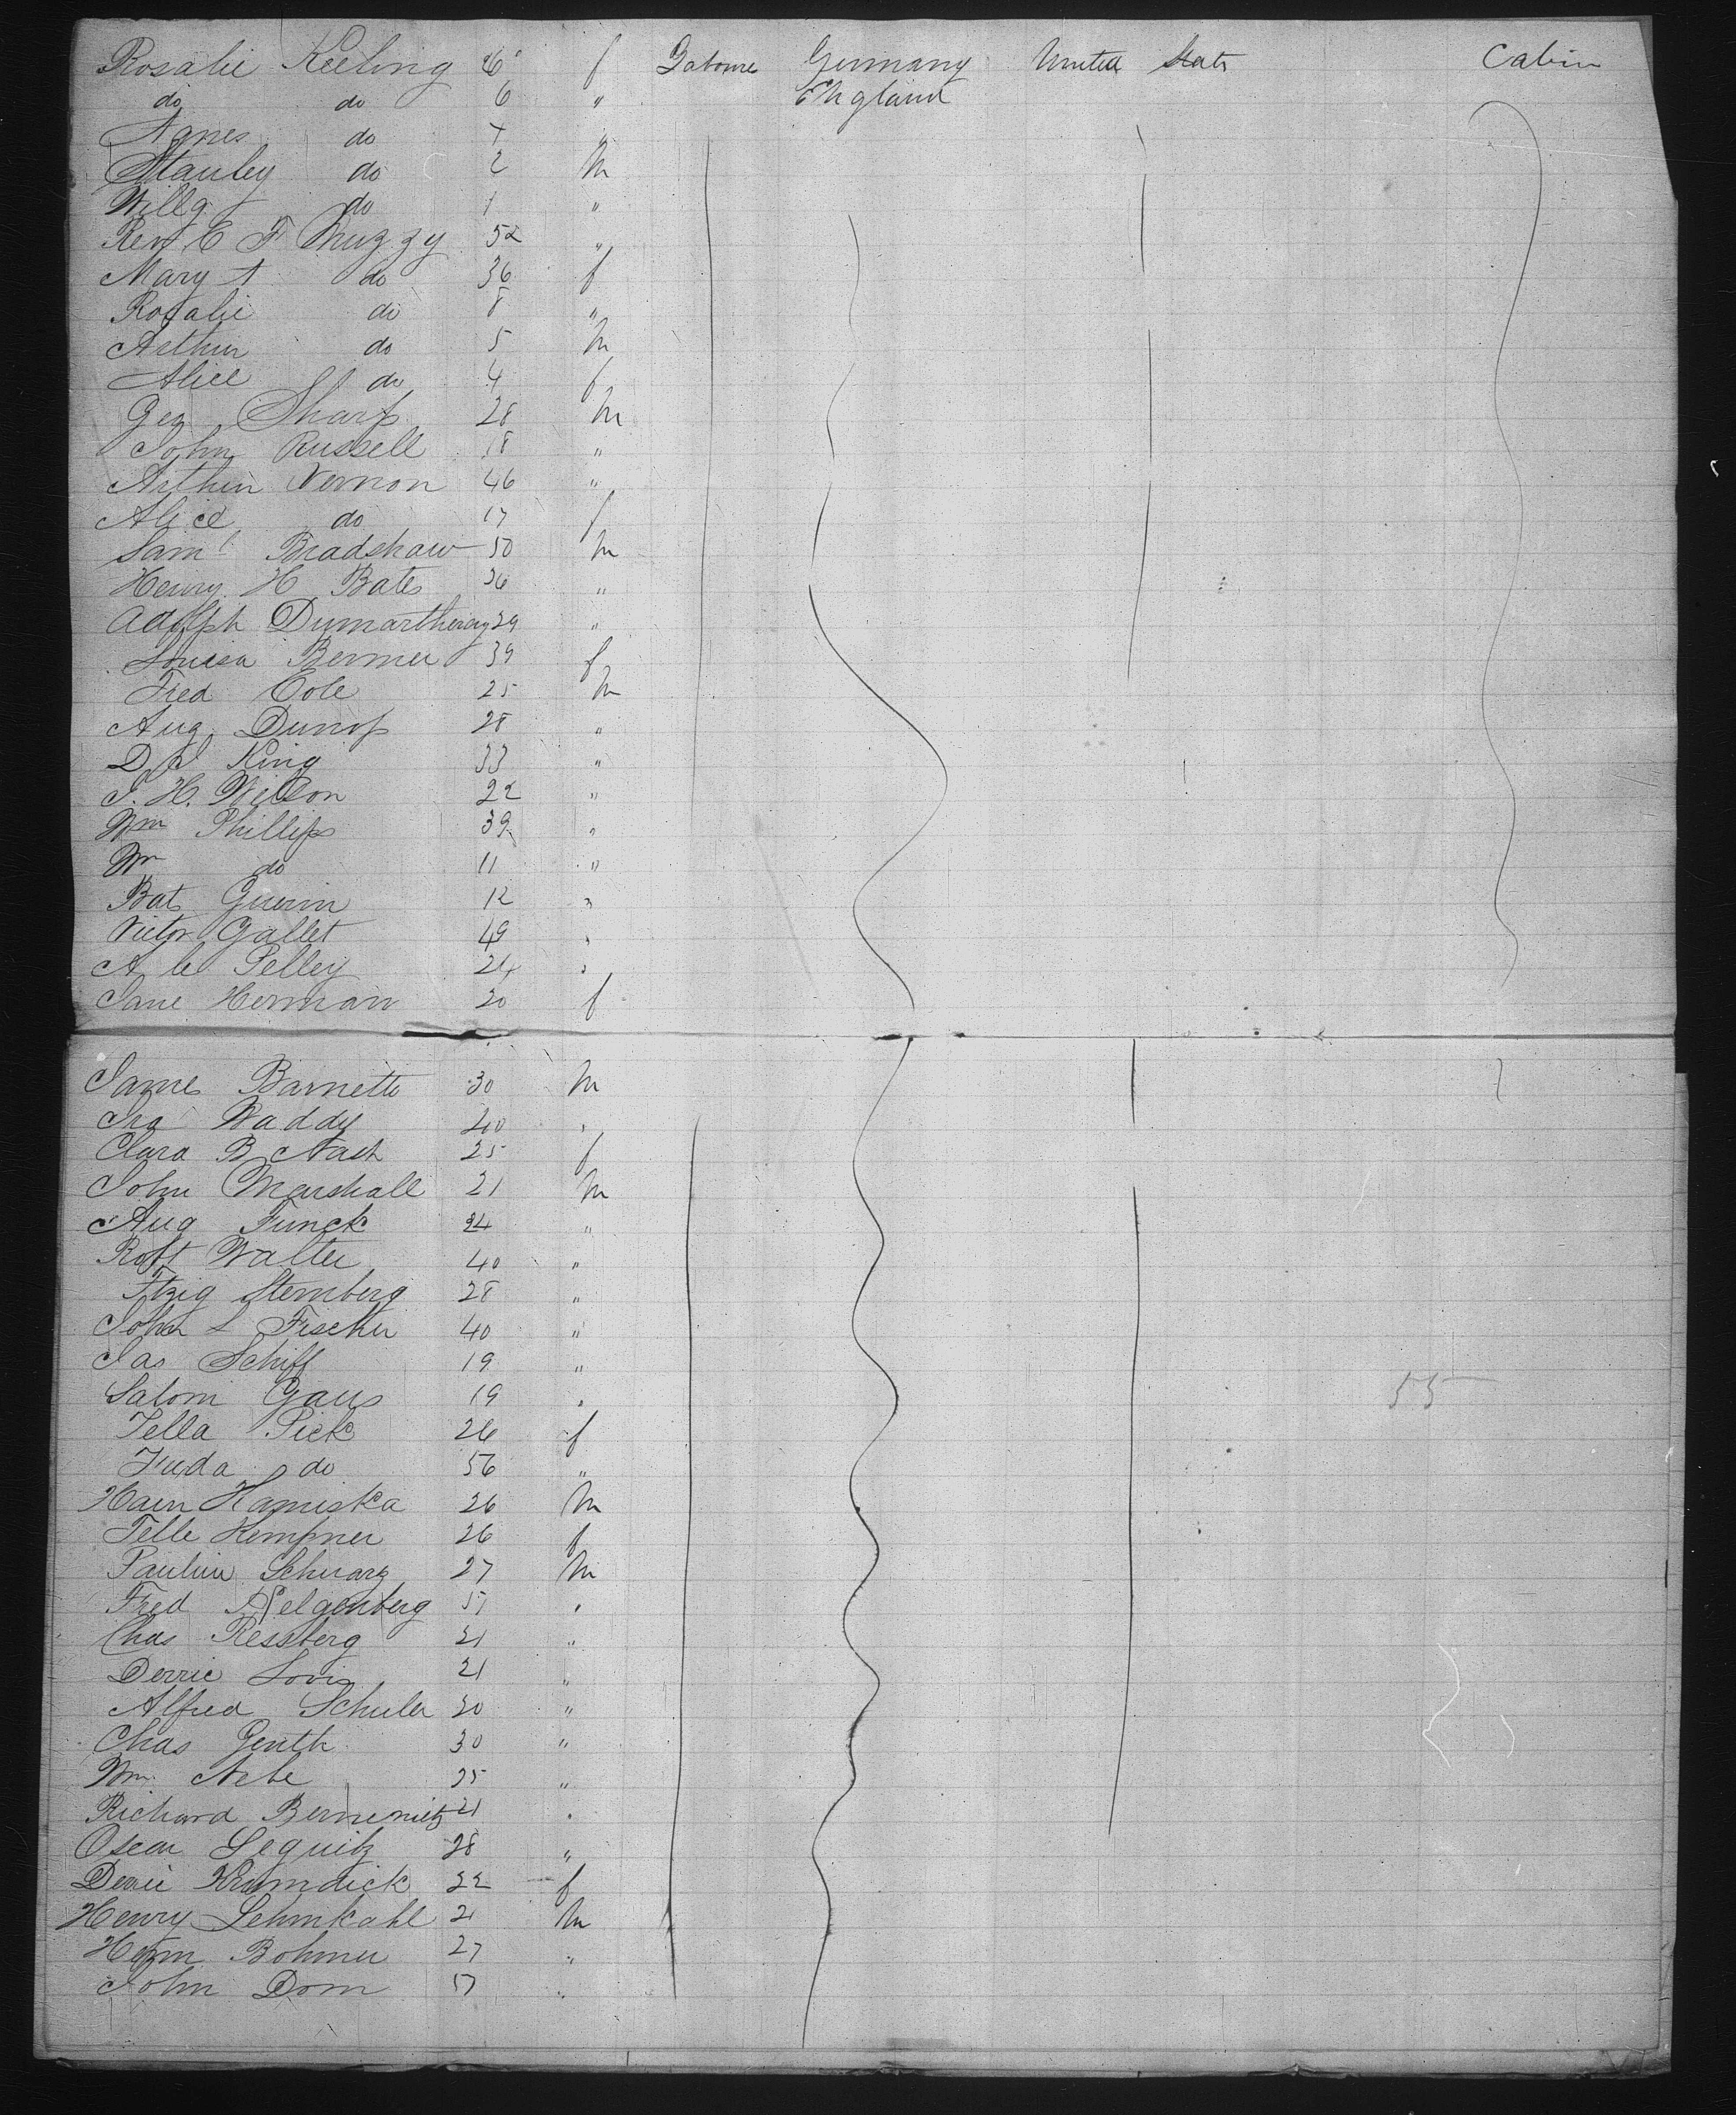 Rosalie Keeling 6 f Labourer Germany United States Cabin
do do 6 " England
Agnes do 4 "
Stanley do 2 m
Willy do 1 "
Rev E F Muzzy 52 "
Mary A do 36 f
Rosalie do 8 "
Arthur do 5 m
Alice do 4 f
Geo Sharp 28 m
John Russell 18 "
Arthur Vernon 46 "
Alice do 17 f
Saml Bradshaw 50 m
Henry H Bates 36 "
Adolph Dumartheray 29 "
Louisa Bermer 39 f
Fred Cole 25 m
Aug Dunop 28 "
D S King 33 "
J. H. Wilson 22 "
Wm Phillips 39 "
Wm do 11 "
Bat Guerin 12 "
Victor Gallet 49 "
A le Pelley 24 "
Jane Herman 20 f
James Barnette 30 m
Ira Waddy 40 "
Clara B Nash 25 f
John Marshall 21 m
Aug Funck 24 "
Robt Walter 40 "
Itzig Sternberg 28 "
John L Fischer 40 "
Jas Schiff 19 "
Salom Gaus 19 " 55
Tella Pick 26 f
Juda do 56 "
Hain Kamiska 26 m
Telle Kempner 26 f
Paulin Schwarz 27 m
Fred 51 "
Chas Ressberg 21 "
Derrie Lovis 21 "
Alfred Schuler 20 "
Chas Genth 30 "
Wm Nebe 25 "
Richard 21 "
Oscar Leguitz 28 "
Derrie Krumdick 22 f
Henry Lehmkahl 21 m
Herm Bohmer 27 "
John Dom 57 "